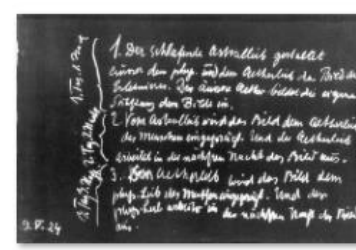 1. Der schlafende Astralleib gestaltet
ausser dem phys. und dem Aetherleib das Bild des
Erlebnisses. Der äussere Aether bildet die eigene
dem Bilde ein.
2. Vom Astralleib wird das Bild dem Aetherleib
des Menschen eingeprägt. Und der Aetherleib
arbeitet in der nächsten Nacht das Bild aus.
3. Vom Aetherleib wird das Bild dem
phys. Leib des Menschen eingeprägt. Und der
phys. Leib arbeitet in der nächsten Nacht das Bild
aus.
1. Tag
2. Tag
3. Tag